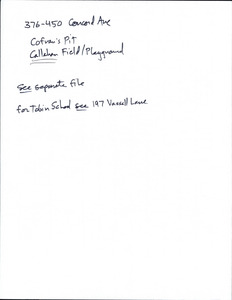 376-450 Concord Ave
Cofran's Pit
Callahan Field/Playground
See separate file
for Tobin School see 197 Vassal Lane